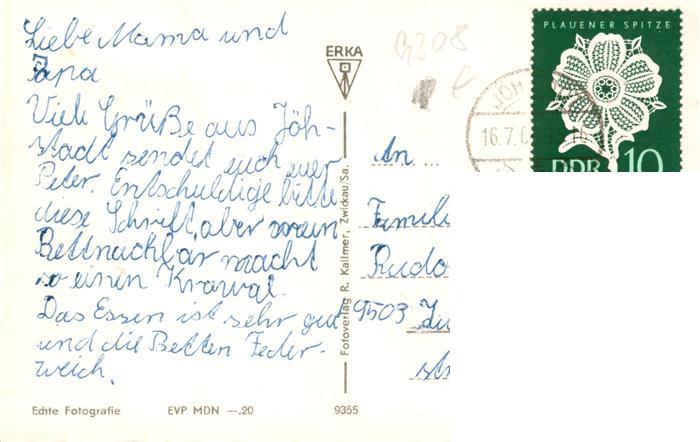 Liebe Mama und
Papa
Viele Grüße aus Jöh-
stadt sendet euch euer
Peter. Entschuldige bitte
diese Schrift, aber mein
Bettnachbar macht
so einen Krawal.
Das Essen ist sehr gut
und die Betten Feder-
weich.
Echte Fotografie EVP MDN —.20 9355
ERKA
Fotoverlag R. Kallmer, Zwickau/Sa.
G308
€
PLAUENER SPITZE
DDR 10
JÖH
16.7.6
An
Famili
Rudo
9503
st